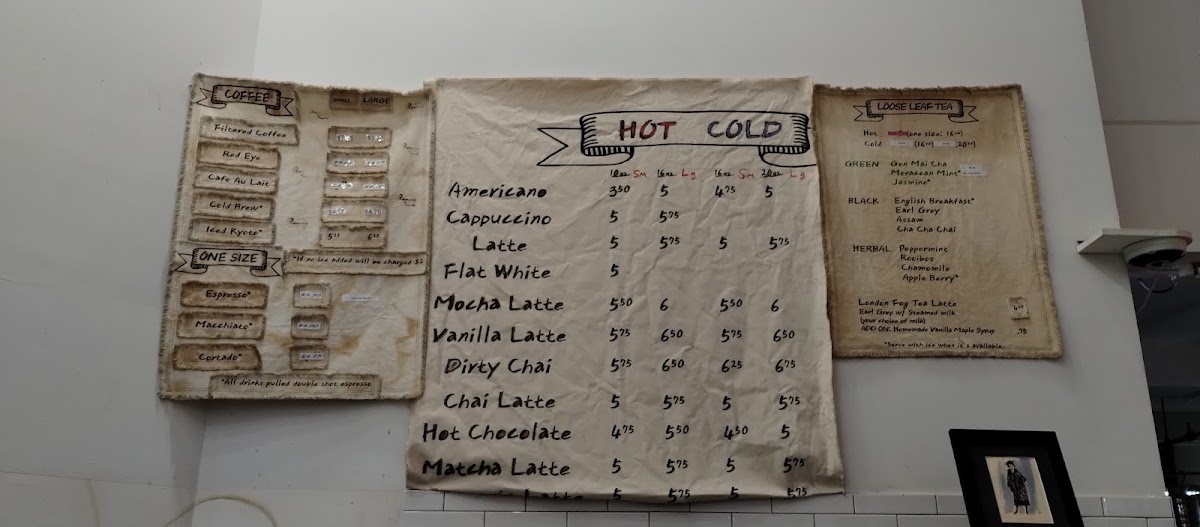 COFFEE
LARGE
Filtered Coffee
Red Eye
Cafe Au Lait
Cold Brew*
Iced Kyoto*
5 6
ONE SIZE
*If no ice added will be charged $2
Espresso*
Macchiato*
Cortado*
*All drinks pulled double shot espresso
HOT COLD
10oz Sm 16oz Lg 16oz Sm 20oz Lg
Americano 3.50 5 4.75 5
Cappuccino 5 5.75
Latte 5 5.75 5 5.75
Flat White 5
Mocha Latte 5.50 6 5.50 6
Vanilla Latte 5.75 6.50 5.75 6.50
Dirty Chai 5.75 6.50 6.25 6.75
Chai Latte 5 5.75 5 5.75
Hot Chocolate 4.75 5.50 4.50 5
Matcha Latte 5 5.75 5 5.75
Latte 5 5.75 5 5.75
LOOSE LEAF TEA
Hot (one size: 16oz)
Cold (16oz) (20oz)
GREEN Gen Mai Cha
Moraccan Mint*
Jasmine*
BLACK English Breakfast*
Earl Grey
Assam
Cha Cha Chai
HERBAL Peppermint
Rooibos
Chamomile
Apple Berry*
London Fog Tea Latte
Earl Grey w/ Steamed milk
(your choice of milk)
ADD ON: Homemade Vanilla Maple Syrup .75
*Serve with ice when it's available.